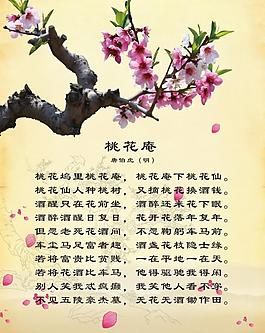 桃花庵
唐伯虎（明）
桃花坞里桃花庵， 桃花庵下桃花仙。
桃花仙人种桃树， 又摘桃花换酒钱。
酒醒只在花前坐， 酒醉还来花下眠。
酒醉酒醒日复日， 花开花落年复年。
但愿老死花酒间， 不愿鞠躬车马前。
车尘马足富者趣， 酒盏花枝隐士缘。
若将富贵比贫贱， 一在平地一在天。
若将花酒比车马， 他得驱驰我得闲。
别人笑我忒疯癫， 我笑他人看不穿。
不见五陵豪杰墓， 无花无酒锄作田。